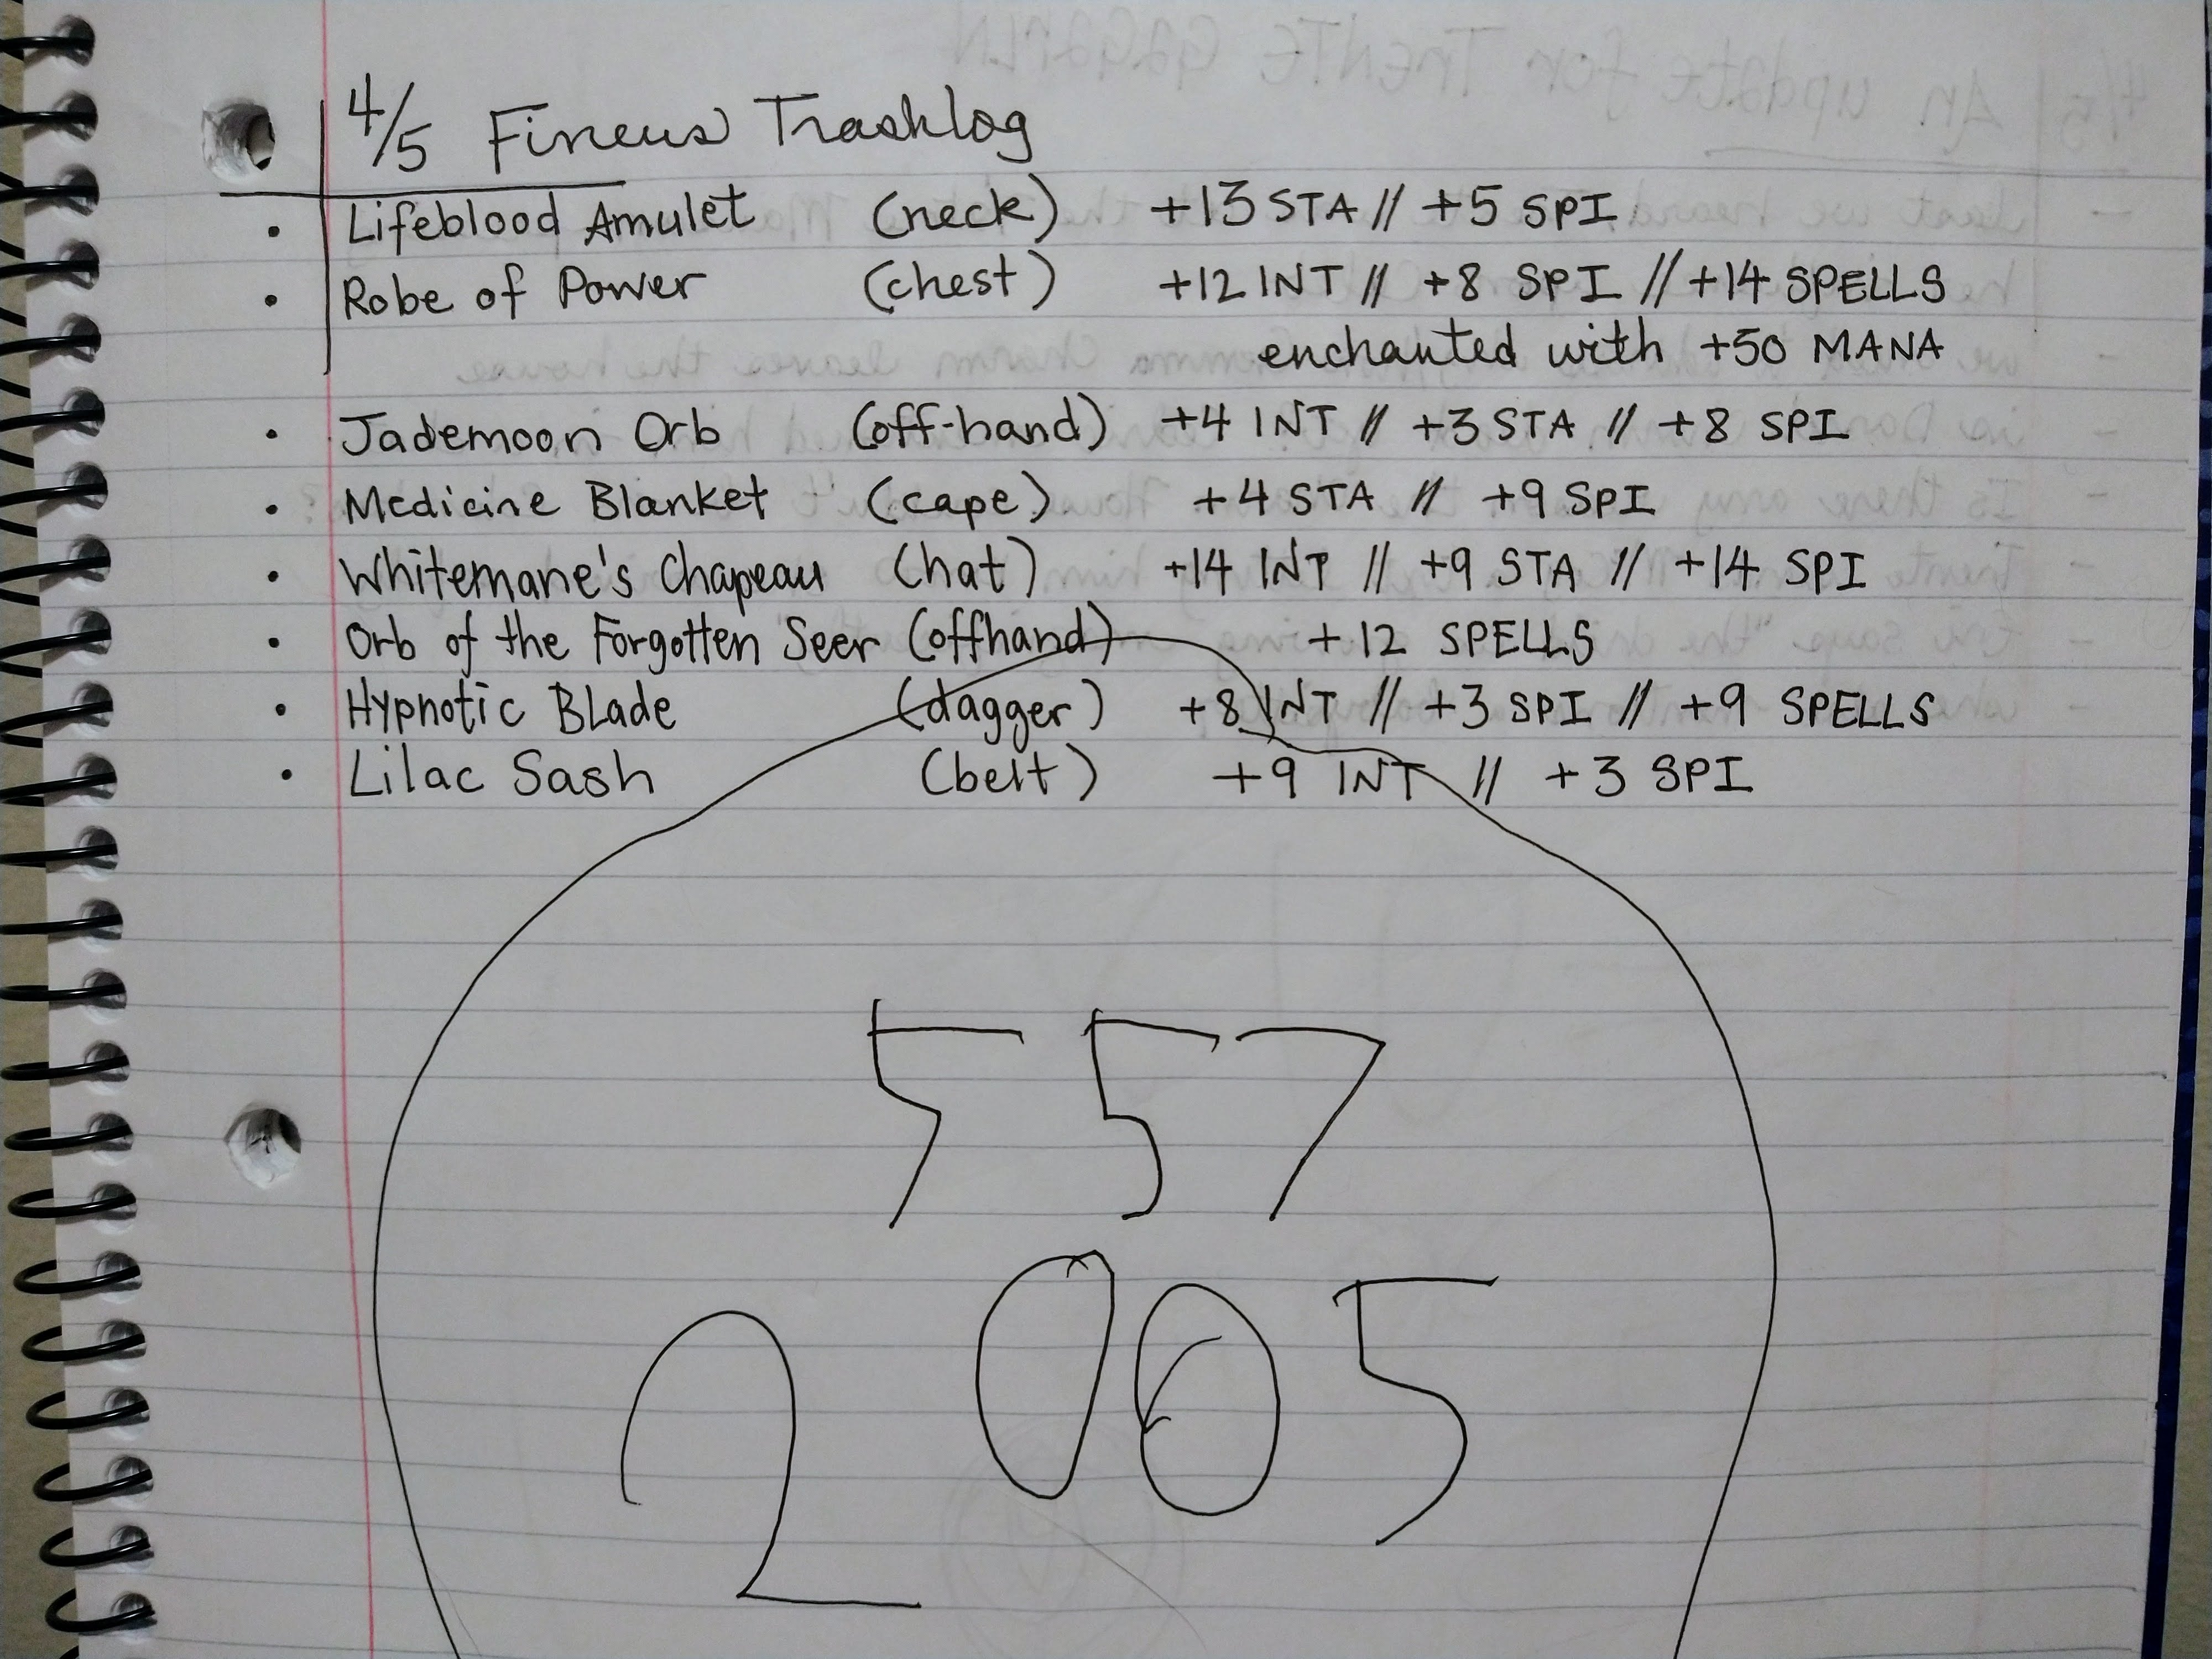 4/5 Fineus Trashlog
• Lifeblood Amulet (neck) +13 STA // +5 SPI
• Robe of Power (chest) +12 INT // +8 SPI // +14 SPELLS
enchanted with +50 MANA
• Jademoon Orb (off-hand) +4 INT // +3 STA // +8 SPI
• Medicine Blanket (cape) +4 STA // +9 SPI
• Whitemane's Chapeau (hat) +14 INT // +9 STA // +14 SPI
• Orb of the Forgotten Seer (offhand) +12 SPELLS
• Hypnotic Blade (dagger) +8 INT // +3 SPI // +9 SPELLS
• Lilac Sash (belt) +9 INT // +3 SPI
557
2005